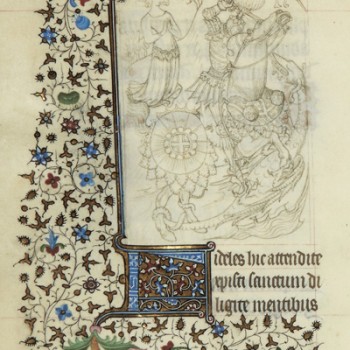 Fideles hic attendite
xpisti sanctum di
ligite mentibus